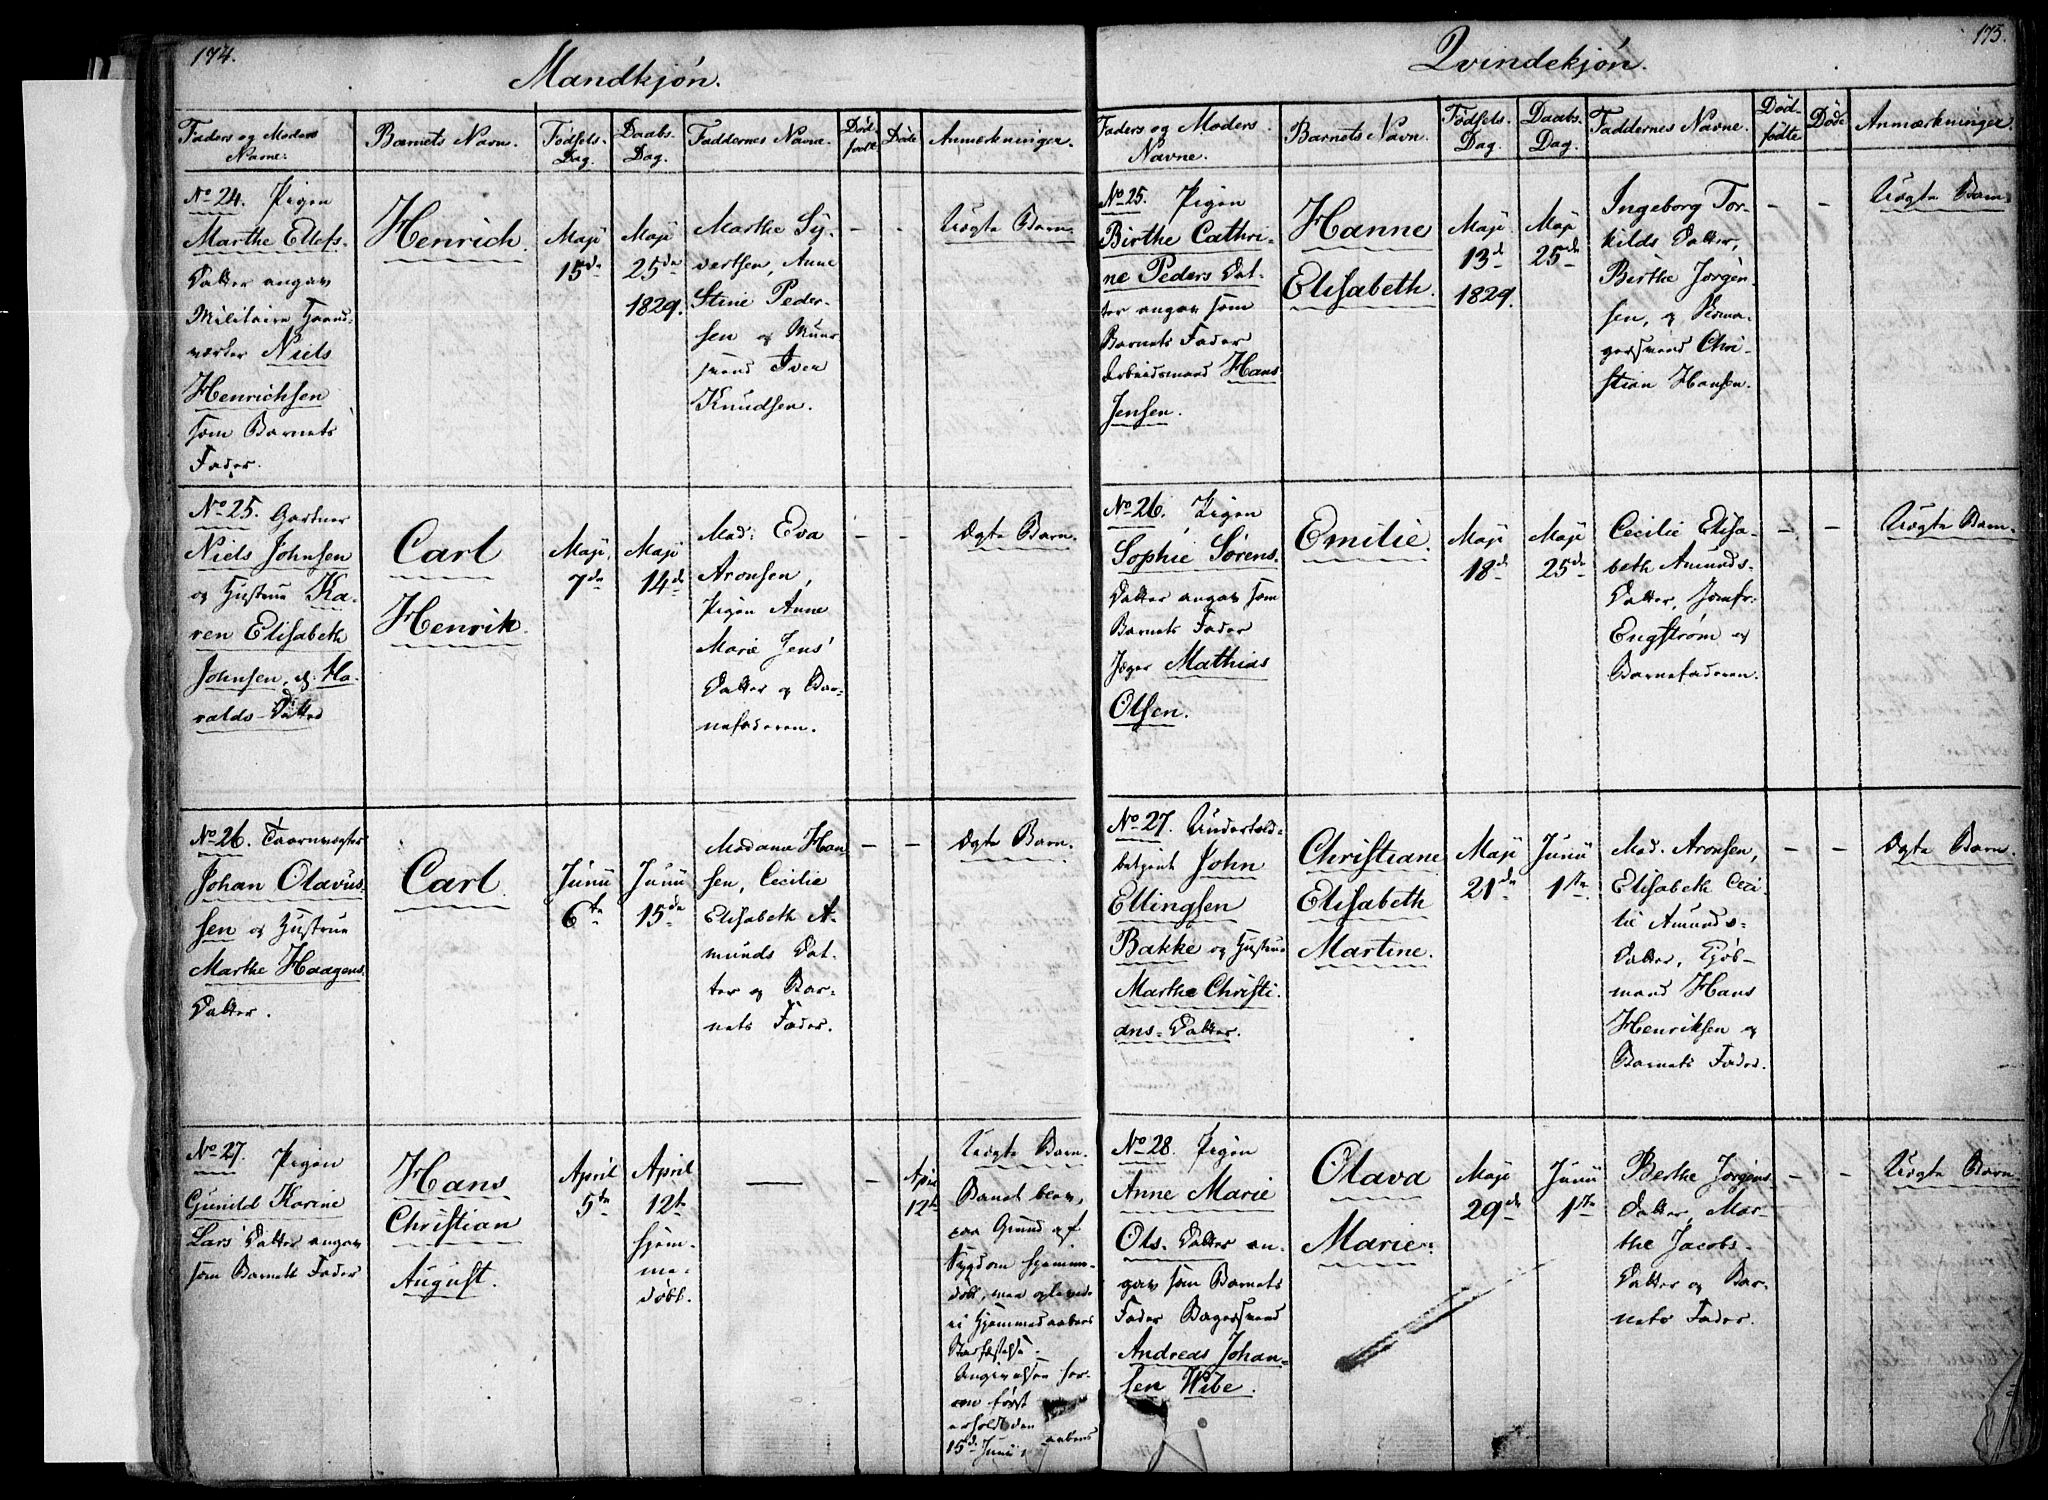 174.
Mandkjøn.
Faders og Moders
Navne.
Barnets Navn.
Fødsels-
Dag.
Daabs-
Dag.
Faddernes Navne.
Død-
fødte
Døde
Anmærkninger.
No 24. Pigen
Marthe Ellefs-
Datter angav
Militaire Haand-
værker Niels
Henrichsen
som Barnets
Fader.
Henrich.
Maji
15de
Maji
25de
1829.
Marthe Sy-
vertsen, Anne
Stine Peder-
sen og Muur-
mand Iver
Knudsen.
-
-
Uægte Barn.
No 25. Gartner
Niels Johnsen
og Hustrue Ka-
ren Elisabeth
Johnsen, Ha-
ralds-Datter
Carl
Henrik.
Maji
7de
Maji
14de
Mad: Eva
Aronsen,
Pigen Anne
Marie Jens'
Datter og Bar-
nefaderen.
-
-
Ægte Barn.
No 26. Taarnvægter
Johan Olavus-
sen og Hustrue
Marthe Haagens-
Datter.
Carl.
Junii
6te
Junii
15de
Madame Han-
sen, Cecilie
Elisabeth A-
munds Dat-
ter og Bar-
nets Fader.
-
-
Ægte Barn.
No 27. Pigen
Gunild Karine
Lars' Datter angav
som Barnets Fader
Hans
Christian
August.
April
5te
April
12te
hjem-
me-
døbt.
—
-
April
12te
Uægte Barn.
Barnet blev,
paa Grund af
Sygdom hjemme-
døbt, men oplevede
ei Hjemmedaabens
Stadfæstelse.
Angivelsen her-
om først
erholdt den
15de Junii
175.
Qvindekjøn.
Faders og Moders
Navne.
Barnets Navn.
Fødsels-
Dag.
Daabs-
Dag.
Faddernes Navne.
Død-
fødte
Døde
Anmærkninger.
No 25. Pigen
Birthe Cathri-
ne Peders Dat-
ter angav som
Barnets Fader
Arbeidsmand Hans
Jensen.
Hanne
Elisabeth.
Maji
13de
1829.
Maji
25de
Ingeborg Tor-
kilds Datter,
Birthe Jørgen-
sen, og
Chri-
stian Hansen.
-
-
Uægte Barn.
No 26. Pigen
Sophie Sørens-
Datter angav som
Barnets Fader
Jæger Mathias
Olsen.
Emilie.
Maji
18de
Maji
25de
Cecilie Elisa-
beth Amunds-
Datter, Jomfr:
Engstrøm og
Barnefaderen.
-
-
Uægte Barn.
No 27. Undertold-
betjent John
Ellingsen
Bakke og Hustrue
Marthe Christi-
ans-Datter.
Christiane
Elisabeth
Martine.
Maji
21de
Junii
1ste
Mad. Aronsen,
Elisabeth Ceci-
lie Amunds-
Datter, Kjøb-
mand Hans
Henriksen og
Barnets Fader.
-
-
Ægte Barn.
No 28. Pigen
Anne Marie
Ols-Datter an-
gav som Barnets
Fader Bagersvend
Andreas Johan-
sen Wibe.
Olava
Marie.
Maji
29de
Junii
1ste
Berthe Jørgens-
Datter, Mar-
the Jacobs-
Datter og Bar-
nets Fader.
-
-
Uægte Barn.